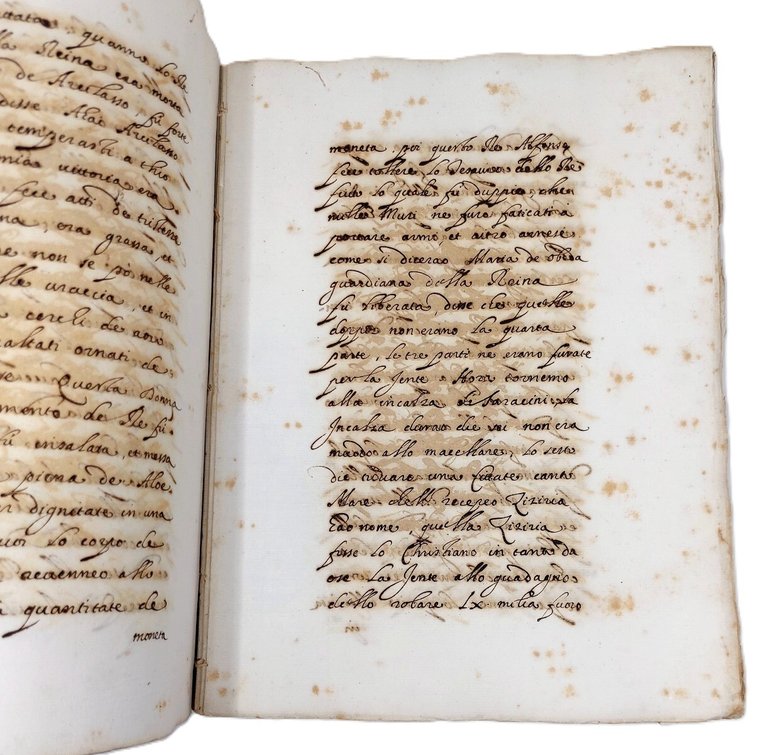 citata, quanno lo Re
lla Reina era morta
de Arcilasso, fu forte
disse Alao Arcilasso
temperarsi a chio
mia vittoria era
fece atti de tristitia
na, era grassa, et
e non se ponelle
lle vraccia, et in
cercli de auro
altati ornati de
Questa Donna
mento de Re fu
fu insalata, et messa
piena de Aloe
dignitate in una
lo corpo de
aceenneo allo
quantitate de
moneta
moneta, poi questo Re Alfonso
fece tollere lo desauro dello Re
fuito lo quale fu duppie che
mille Muri ne furo faticati a
portare arme, et altro arnese
come si dicerao Maria de obeda
guardiana della Reina
fu liberata, disse che quelle
doppie non erano la quarta
parte, le tre parti ne erano furate
per la Jente Hora tornemo
alla incalza di Saracini la
Incalza durao che sei non era
maodo allo macellare, lo sesto
die trovare una Citate canta
Mare che lli receveo Ziziria
hao nome quella Ziziria
fusse lo Christiano in tanta da
ose la Jente allo guadagno
dello robare LX milia furo